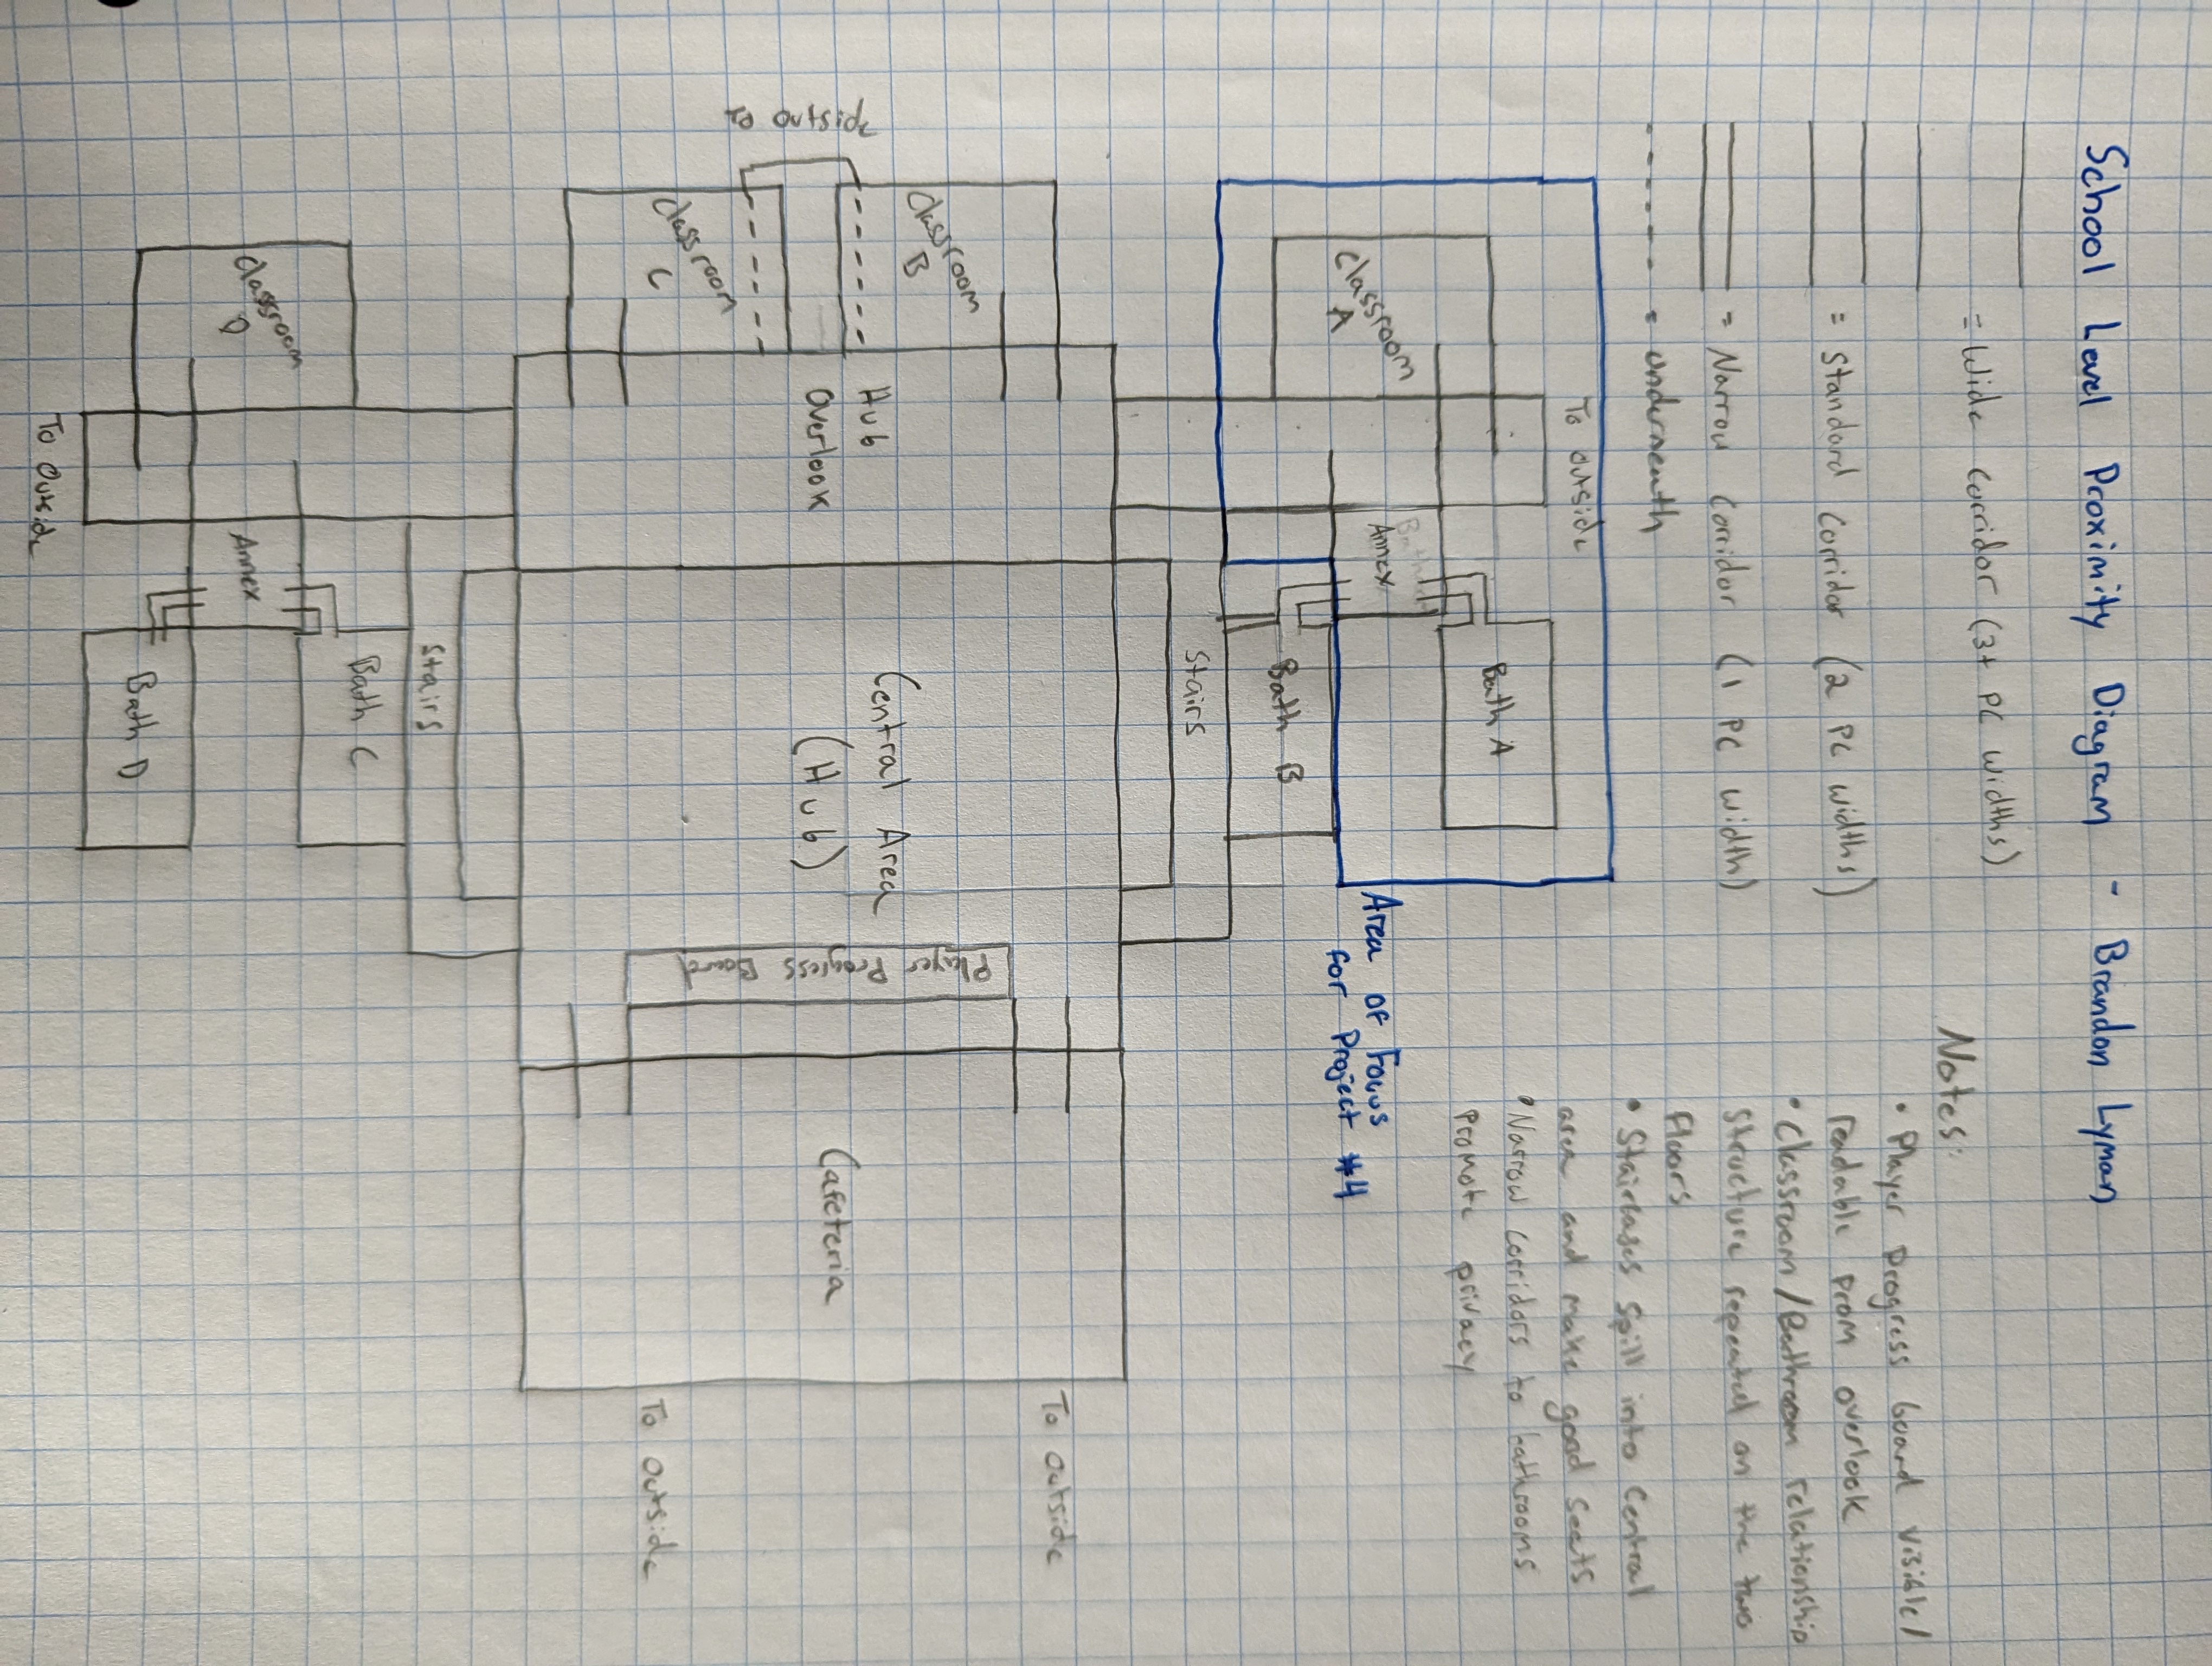 School Level Proximity Diagram - Brandon Lyman
= Wide Corridor (3+ PC widths)
= Standard Corridor (2 PC widths)
= Narrow Corridor (1 PC width)
= underneath
Notes:
• Player Progress board visible/
readable from overlook
• Classroom/Bathroom relationship
structure repeated on the two
floors
• Staircases spill into central
area and make good seats
• Narrow corridors to bathrooms
promote privacy
To outside
Bath A
Annex
Classroom
A
Area of Focus
for Project #4
Bath B
Stairs
To outside
Classroom
B
Hub
Overlook
To outside
Central Area
(Hub)
Player Progress Board
Cafeteria
Classroom
C
To outside
Stairs
Bath C
Classroom
D
Annex
Bath D
To Outside